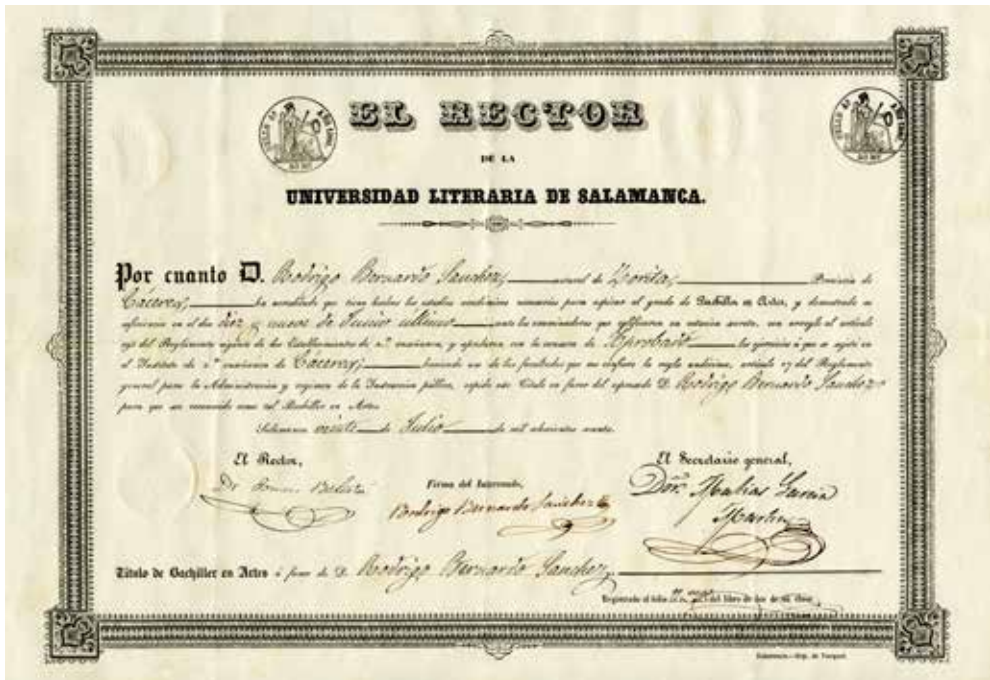 EL RECTOR
DE LA
UNIVERSIDAD LITERARIA DE SALAMANCA.
Por cuanto D. Rodrigo Bernardo Sanchez, natural de Zorita, Provincia de
Cáceres, ha acreditado que tiene hechos los estudios académicos necesarios para aspirar al grado de Bachiller en Artes, y demostrado su
suficiencia en el dia diez y nueve de Junio último ante los examinadores que con arreglo al artículo
del Reglamento vigente de los Establecimientos de 2.ª enseñanza, y aprobara con la censura de Aprobado los ejercicios á que se sujetó en
el Instituto de 2.ª enseñanza de Cáceres; haciendo uso de las facultades que me confiere la regla undécima, artículo 17 del Reglamento
general para la Administracion y régimen de la Instruccion pública, expido este Título en favor del expresado D. Rodrigo Bernardo Sanchez
para que sea reconocido como tal Bachiller en Artes.
Salamanca veinte de Julio de mil ochocientos sesenta.
El Rector,
Firma del Interesado,
El Secretario general,
Rodrigo Bernardo Sanchez
Dor. Matias Garcia
Martin
Título de Bachiller en Artes á favor de D. Rodrigo Bernardo Sanchez,
Registrado al fólio del libro de los de su clase.